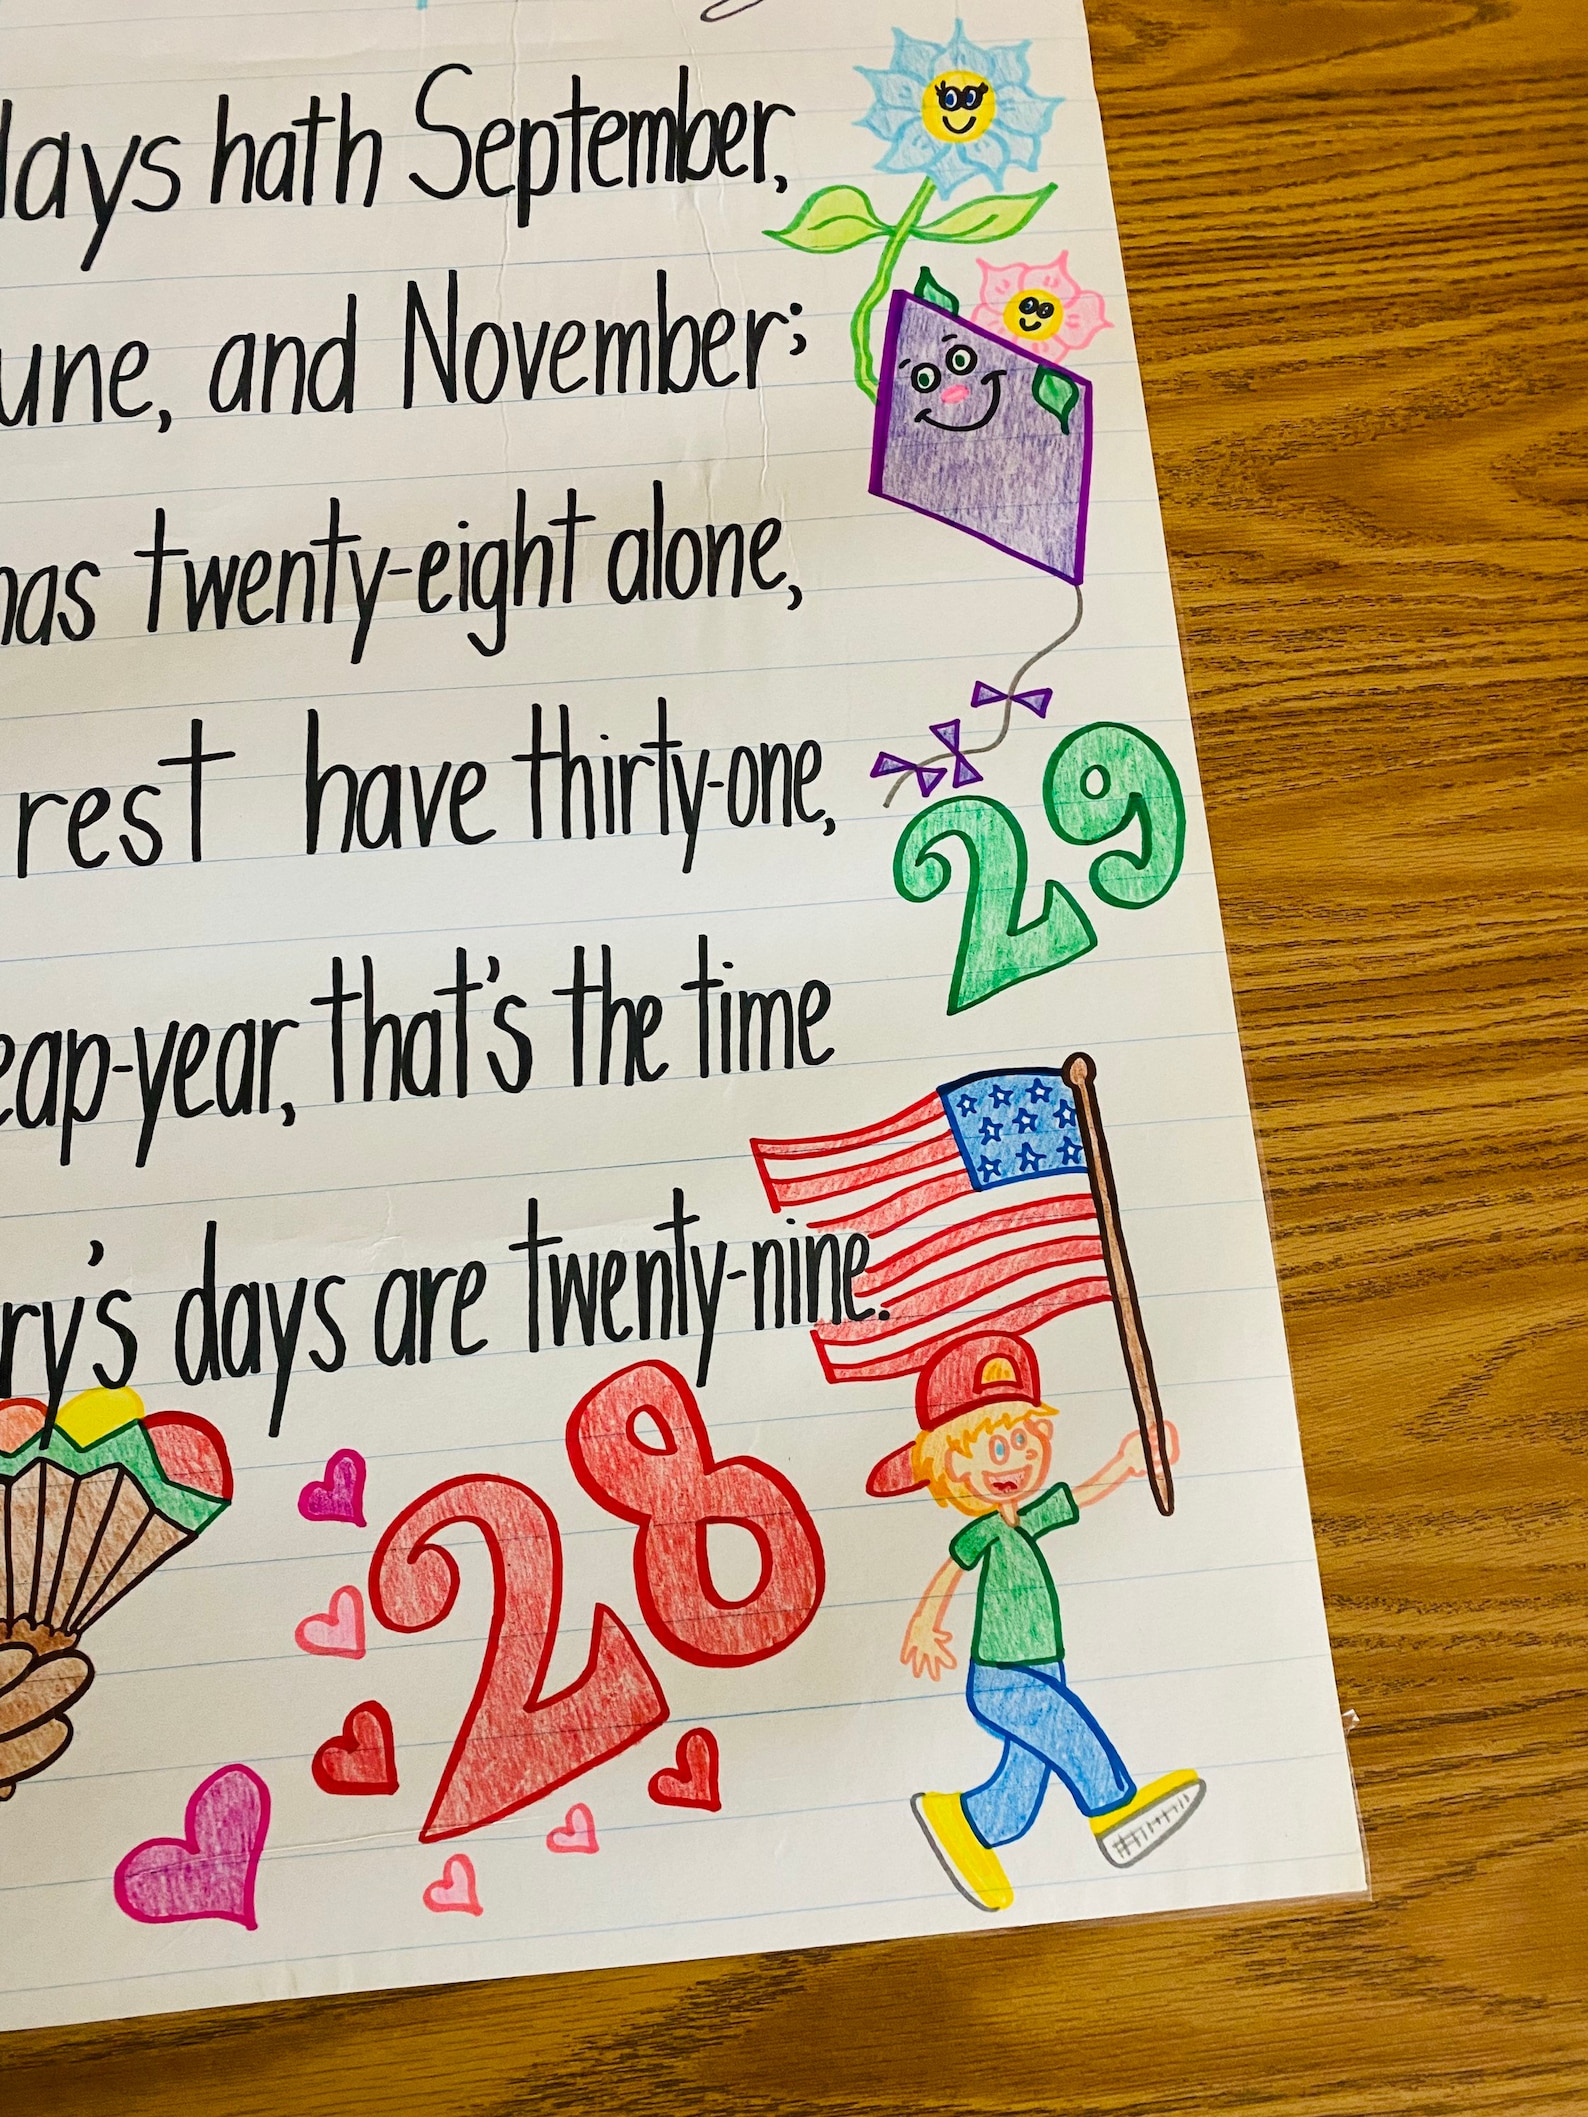 days hath September,
une, and November;
has twenty-eight alone,
rest have thirty-one,
eap-year, that's the time
ry's days are twenty-nine.
29
28